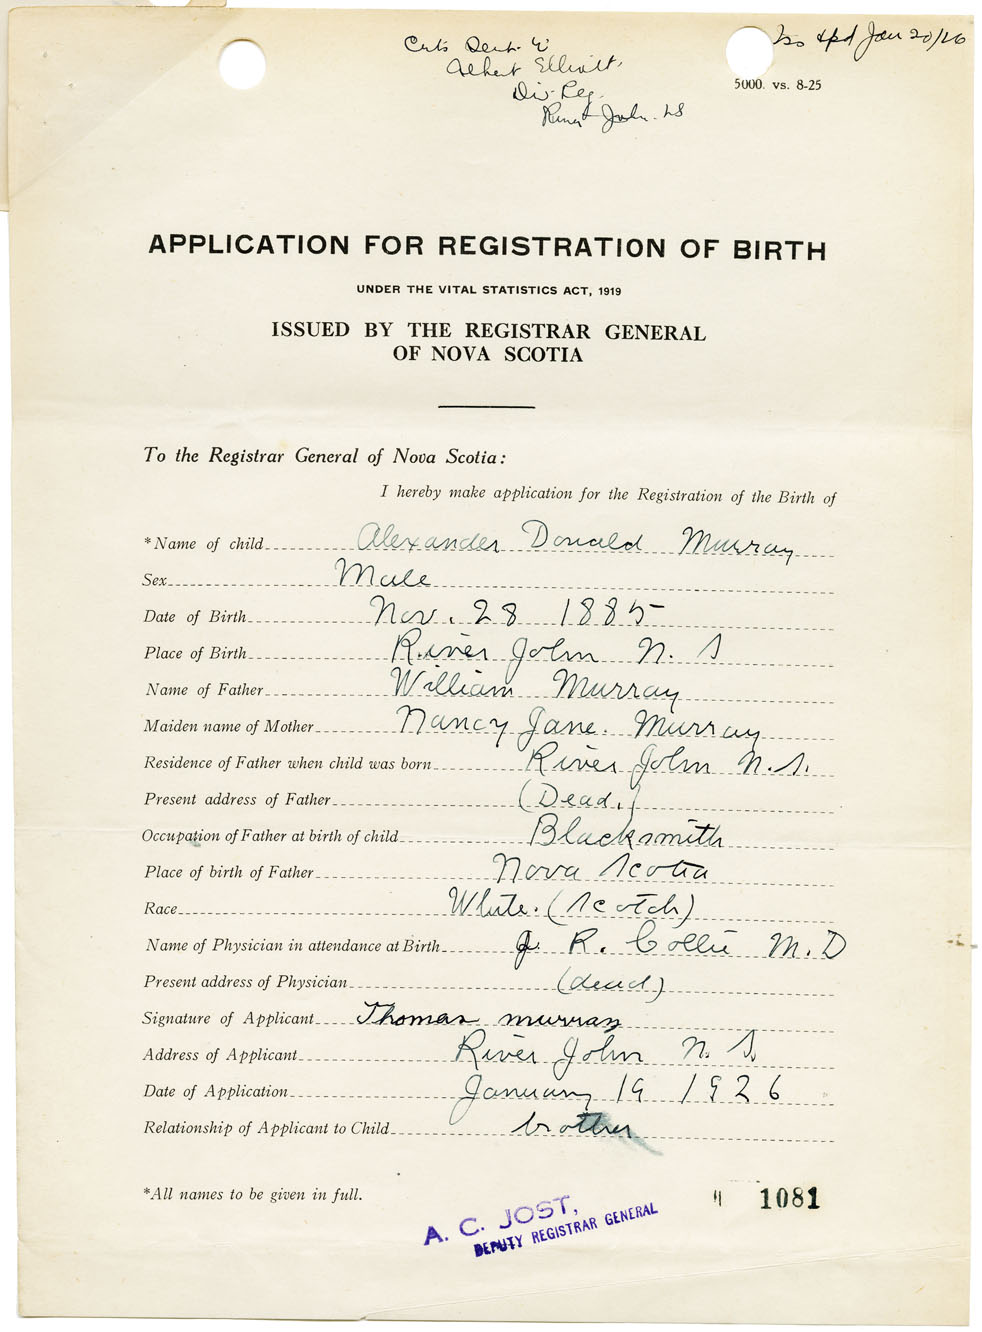 Jan 20/26
Albert Elliott,
Div. Reg.
River John. NS
5000. vs. 8-25
APPLICATION FOR REGISTRATION OF BIRTH
UNDER THE VITAL STATISTICS ACT, 1919
ISSUED BY THE REGISTRAR GENERAL
OF NOVA SCOTIA
To the Registrar General of Nova Scotia:
I hereby make application for the Registration of the Birth of
*Name of child Alexander Donald Murray
Sex Male
Date of Birth Nov. 28 1885
Place of Birth River John N. S
Name of Father William Murray
Maiden name of Mother Nancy Jane. Murray
Residence of Father when child was born River John N.S.
Present address of Father (Dead.)
Occupation of Father at birth of child Blacksmith
Place of birth of Father Nova Scotia
Race White. (Scotch)
Name of Physician in attendance at Birth J. R. Collie M.D
Present address of Physician (dead)
Signature of Applicant Thomas murray
Address of Applicant River John N. S.
Date of Application January 19 1926
Relationship of Applicant to Child brother
*All names to be given in full.
1081
A. C. JOST,
DEPUTY REGISTRAR GENERAL